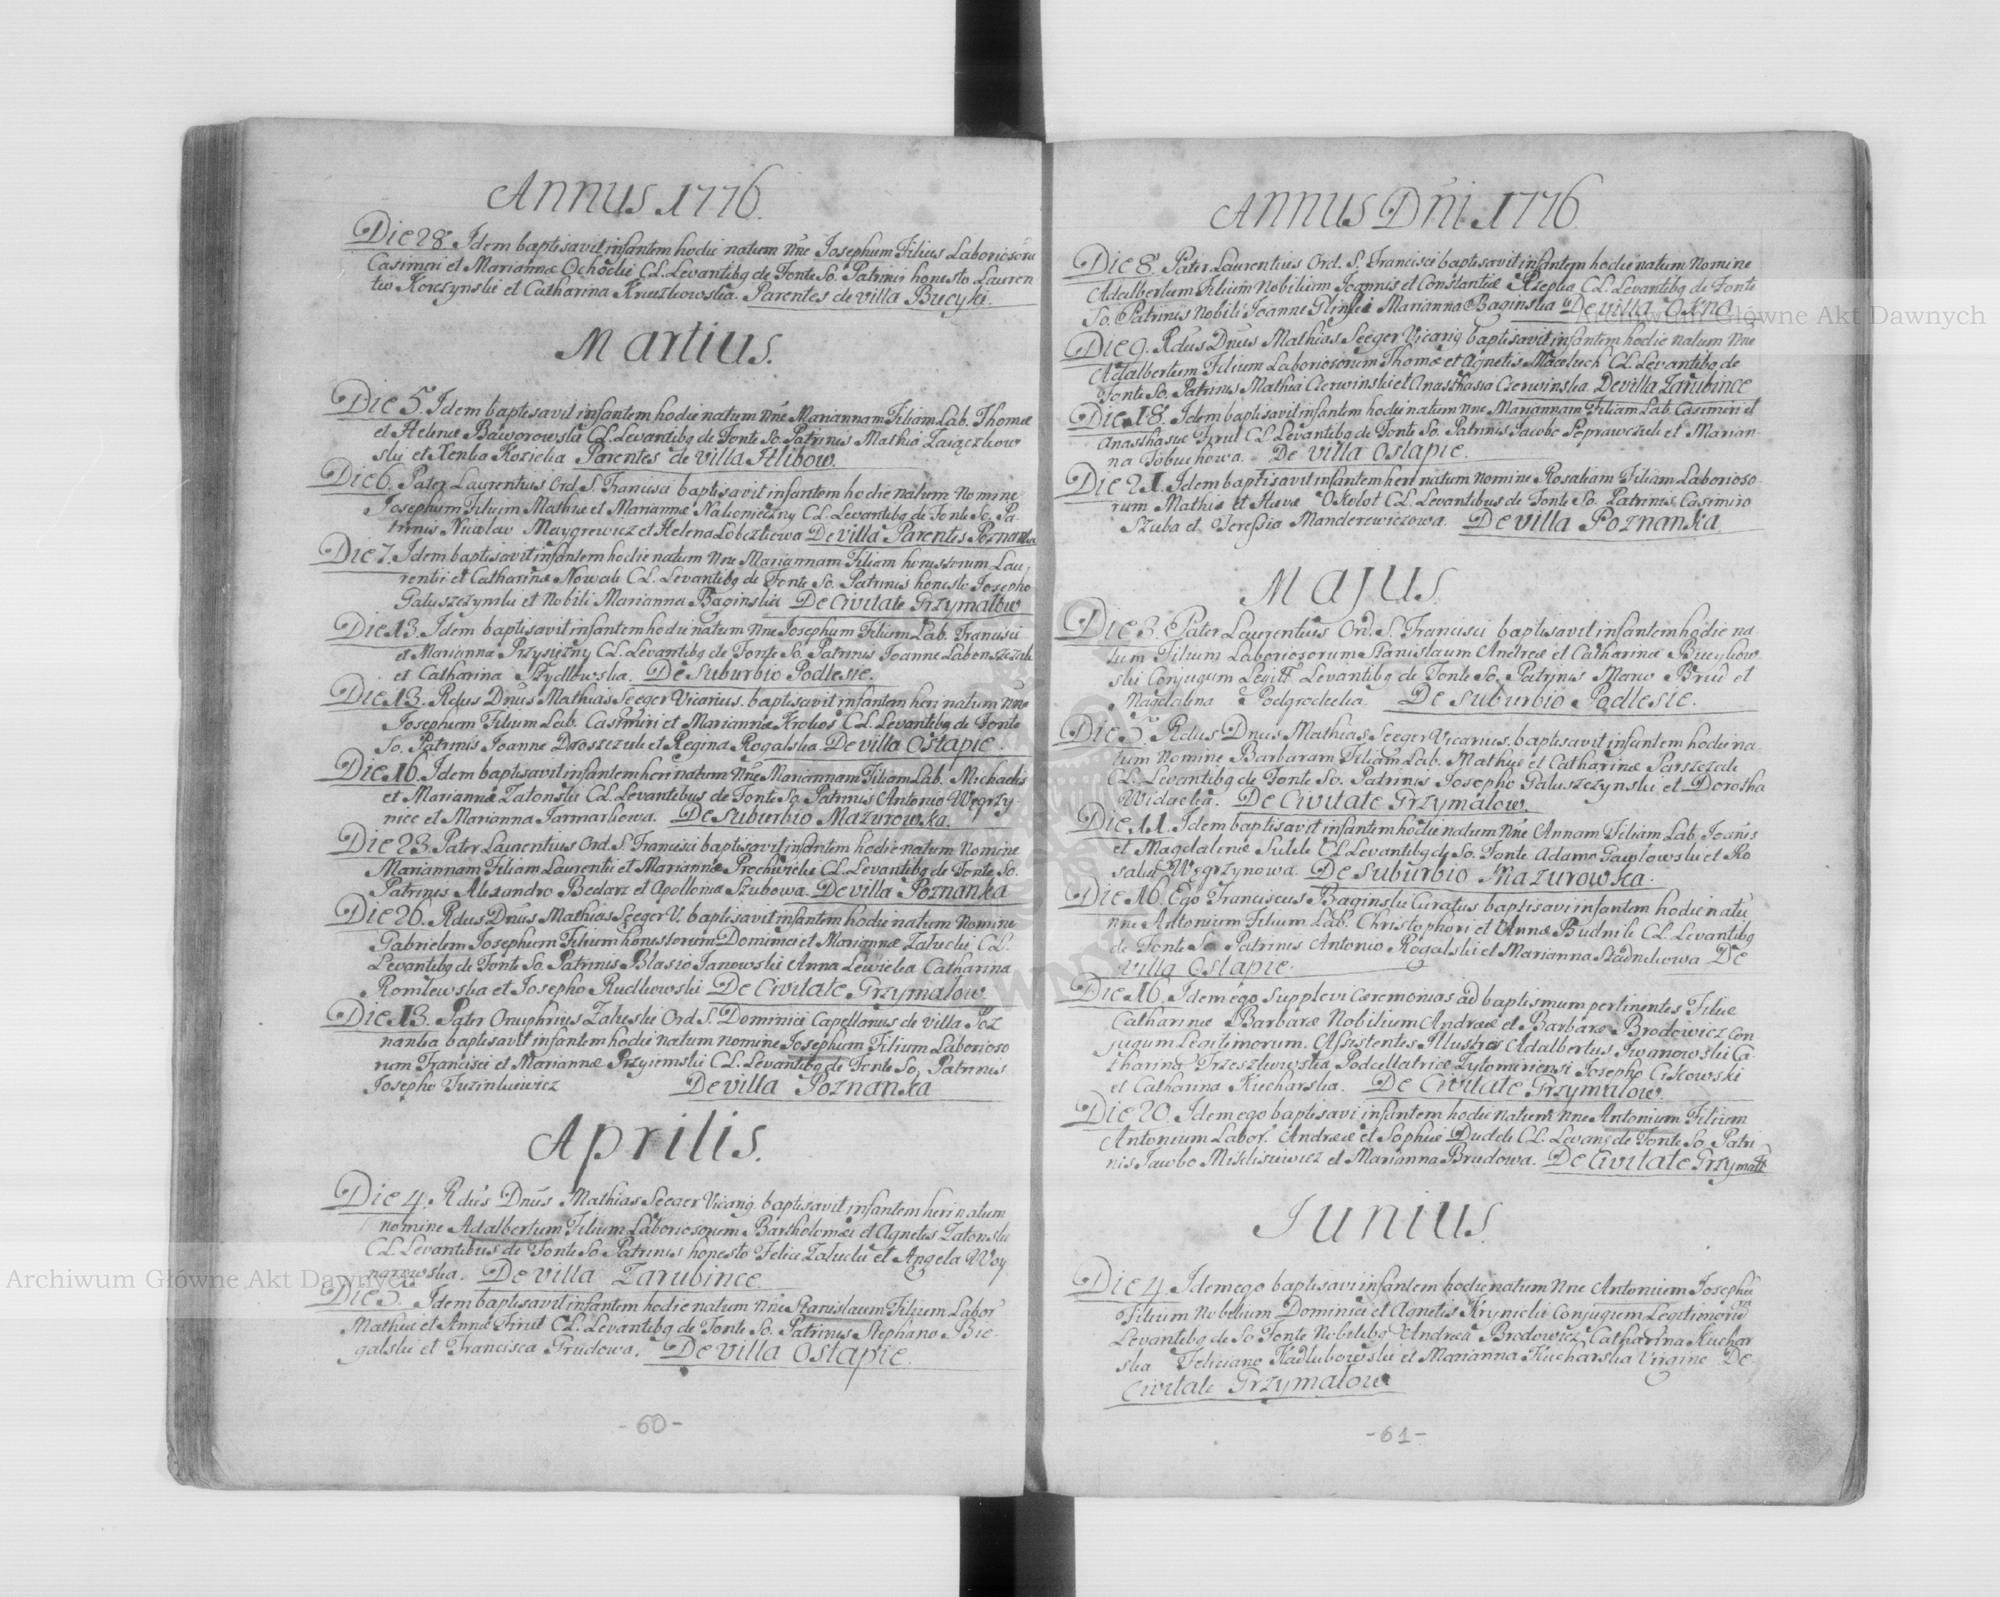 Annus 1776.
Die 28. Idem baptisavit infantem hodie natum Nne Josephum Filius Laboriosoru
Casimiri et Mariannæ Ochocki CL. Levantibq de Fonte So. Patrinis honesto Lauren
tio Korczynski et Catharina Kruczkowska. Parentes de villa Bucyki.
Martius.
Die 5. Idem baptisavit infantem hodie natum Nne Mariannam Filiam Lab. Thomæ
et Helenæ Baworowski CL. Levantibq de Fonte So. Patrinis Mathia Zaiączkow
ski et Xenka Koziclia Parentes de villa Hlibow.
Die 6. Pater Laurentius Ord. S. Francisci baptisavit infantem hodie natum Nomine
Josephum Filium Mathiæ et Mariannæ Nakonieczny CL. Levantibq de Fonte So. Pa
trinis Nicolao Maygrewicz et Helena Lobczkowa De Villa Parentes Poznanka
Die 7. Idem baptisavit infantem hodie natum Nne Mariannam Filiam honestorum Lau,
rentii et Catharinæ Nowak CL. Levantibq de Fonte So. Patrinis honesto Josepho
Galuszczynski et Nobili Marianna Baginska De Civitate Grzymałow
Die 13. Idem baptisavit infantem hodie natum Nne Josephum Filium Lab. Francisci
et Marianna Przysiezny CL. Levantibq de Fonte So. Patrinis Joanne Labonszczak
et Catharina Szydlowska. De Suburbio Podlesie.
Die 13. Rdus Dnus Mathias Seeger Vicarius. baptisavit infantem heri natum Nne
Josephum Filium Lab. Casimiri et Mariannæ Krokos CL. Levantibq de Fonte
So. Patrinis Joanne Droszczuk et Regina Rogalska De villa Ostapie.
Die 16. Idem baptisavit infantem heri natum Nne Mariannam Filiam Lab. Michaelis
et Mariannæ Zatonski CL. Levantibus de Fonte So. Patrinis Antonio Węgrzy-
nice et Marianna Jarmarkowa. De Suburbio Mazurowka.
Die 23. Pater Laurentius Ord. S. Francisci baptisavit infantem hodie natum Nomine
Mariannam Filiam Laurentii et Mariannæ Prochwicki CL. Levantibq de Fonte So.
Patrinis Alexandro Bednarz et Apollonia Szubowa. De villa Poznanka
Die 26. Rdus Dnus Mathias Seeger V. baptisavit infantem hodie natum Nomine
Gabrielem Josephum Filium honestorum Dominici et Mariannæ Zalucki CL.
Levantibq de Fonte So. Patrinis Blasio Janowski Anna Lewicka Catharina
Romlewska et Josepho Rudkowski De Civitate Grzymalow
Die 13. Pater Onuphrius Zaleski Ord S. Dominici Capellanus de villa Poz
nanka baptisavit infantem hodie natum Nomine Josephum Filium Laborioso
rum Francisci et Mariannæ Przyiemski CL. Levantibq de Fonte So, Patrinis
Josepho De villa Poznanka
Aprilis.
Die 4. Rdus Dnus Mathias Seeger Vicarig baptisavit infantem heri natum
nomine Adalbertum Filium Laboriosorum Bartholomæi et Agnetis Zatonski
CL. Levantibus de Fonte So Patrinis honesto Felice Zalucki et Angela Woy
narowska. De villa Zarubince
Die 5. Idem baptisavit infantem hodie natum Nne Stanislaum Filium Labor
Mathiæ et Annæ Firut CL. Levantibq de Fonte So. Patrinis Stephano Bie.
galski et Francisca Grudowa. De villa Ostapie.
-60-
Annus Dni 1776
Die 8. Pater Laurentius Ord. S. Francisci baptisavit infantem hodie natum Nomine
Adalbertum Filium Nobilium Joannis et Constantiæ Rzepka CL. Levantibq de Fonte
So. Patrinis Nobili Joanne Glinski Marianna Baginska De villa Okno
Die 9. Rdus Dnus Mathias Seeger Vicariq baptisavit infantem hodie natum Nne
Adalbertum Filium Laboriosorum Thomæ et Agnetis Maceluch CL. Levantibq de
Fonte So. Patrinis Mathia Czerwinski et Anasthasia Czerwinska. De villa Zarubince
Die 18. Idem baptisavit infantem hodie natum Nne Mariannam Filiam Lab. Casimiri et
Anasthasiæ Firut CL. Levantibq de Fonte So. Patrinis Jacobo Poprawczuk et Marian-
na Tobuchowa. De villa Ostapie.
Die 21. Idem baptisavit infantem heri natum nomine Rosaliam Filiam Laborioso
rum Mathiæ et Hevæ Okolot CL. Levantibus de Fonte So. Patrinis Casimiro
Szuba et Teressia Manderewiczowa. De villa Poznanka
Majus
Die 3. Pater Laurentius Ord. S. Francisci baptisavit infantem hodie na
tum Filium Laboriosorum Stanislaum Andreæ et Catharinæ Bucykow
ski Conjugum Legitt. Levantibq de Fonte So. Patrinis Marco Brud et
Magdalena Podgrodecka De Suburbio Podlesie.
Die 5. Rdus Dnus Mathias Seeger Vicarius. baptisavit infantem hodie na-
tum Nomine Barbaram Filiam Lab. Mathiæ et Catharinæ Parszczak
CL. Levantibq de Fonte So. Patrinis Josepho Galuszczynski et Dorotha
Widacka. De Civitate Grzymalow.
Die 11. Idem baptisavit infantem hodie natum Nne Annam Filiam Lab. Joanis
et Magdalenæ Sulik CL Levantibq de So. Fonte Adamo Gawlowski et Ro
salia Węgrzynowa. De Suburbio Mazurowka.
Die 16. Ego Franciscus Baginski Curatus baptisavi infantem hodie natu
nne Antonium Filium Lab. Christophori et Annæ Budnik CL. Levantibq
de Fonte So Patrinis Antonio Rogalski et Marianna Stadnikowa De
villa Ostapie.
Die 16. Idem ego Supplevi Ceremonias ad baptismum pertinentes Filiæ
Catharinæ Barbaræ Nobilium Andreæ et Barbaræ Brodowicz Con
jugum Legitimorum. Assistentes Illustres Adalbertus Iwanowski Ca-
tharina Trzeszkowska Podczellatricæ Zytomiriensi Josepho Cikowski
et Catharina Kucharska. De Civitate Grzymalow
Die 20. Idem ego baptisavi infantem hodie natum Nne Antonium Filium
Antonium Labor. Andreæ et Sophiæ Dudek CL. Levanq de Fonte So. Patri
nis Jacobo Mikliszewicz et Marianna Brudowa. De Civitate Grzymałł
Iunius.
Die 4. Idem ego baptisavi infantem hodie natum Nne Antonium Josephu
Filium Nobilium Dominici et Agnetis Krynicki Conjugum Legitimorum
Levantibq de So Fonte Nobilibq Andrea Brodowicz Catharina Kuchar
ska Feliciano Kadlubowski et Marianna Kucharska Virgine De
Civitate Grzymalow
-61-
Archiwum Główne Akt Dawnych
Archiwum Główne Akt Dawnych